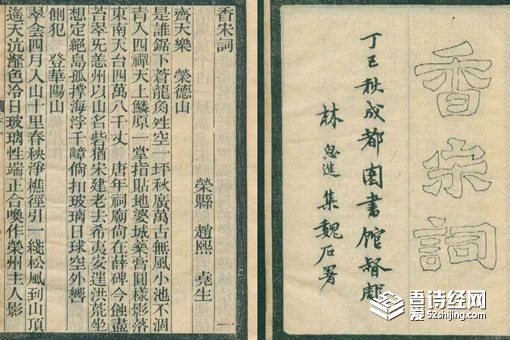 香宋詞
丁巳秋成都圖書館督雕
林思進集魏石署
香宋詞
榮縣 趙熙 堯生
齊天樂 榮德山
是誰鋸下蒼龍角姓空一坪秋廣萬古無風小池不涸
青入四禪天上鱗原一掌指貼地婆城藥膏圓樣影落
東南天台四萬八千丈 唐年祠廟尚在薜碑今蝕盡
苔翠旡恙州以山名砦猶宋建老去希夷安洪荒坐
想定絕島孤撐海浮千嶂倘扣玻璃日球空外響
側犯 登華陽山
翠四月入山十里春秧淨樵徑引一綫松風到山頂
遙天沆瀣色冷日玻瓈性端正合喚作榮州主人影
一
吾诗经网
52shijing.com